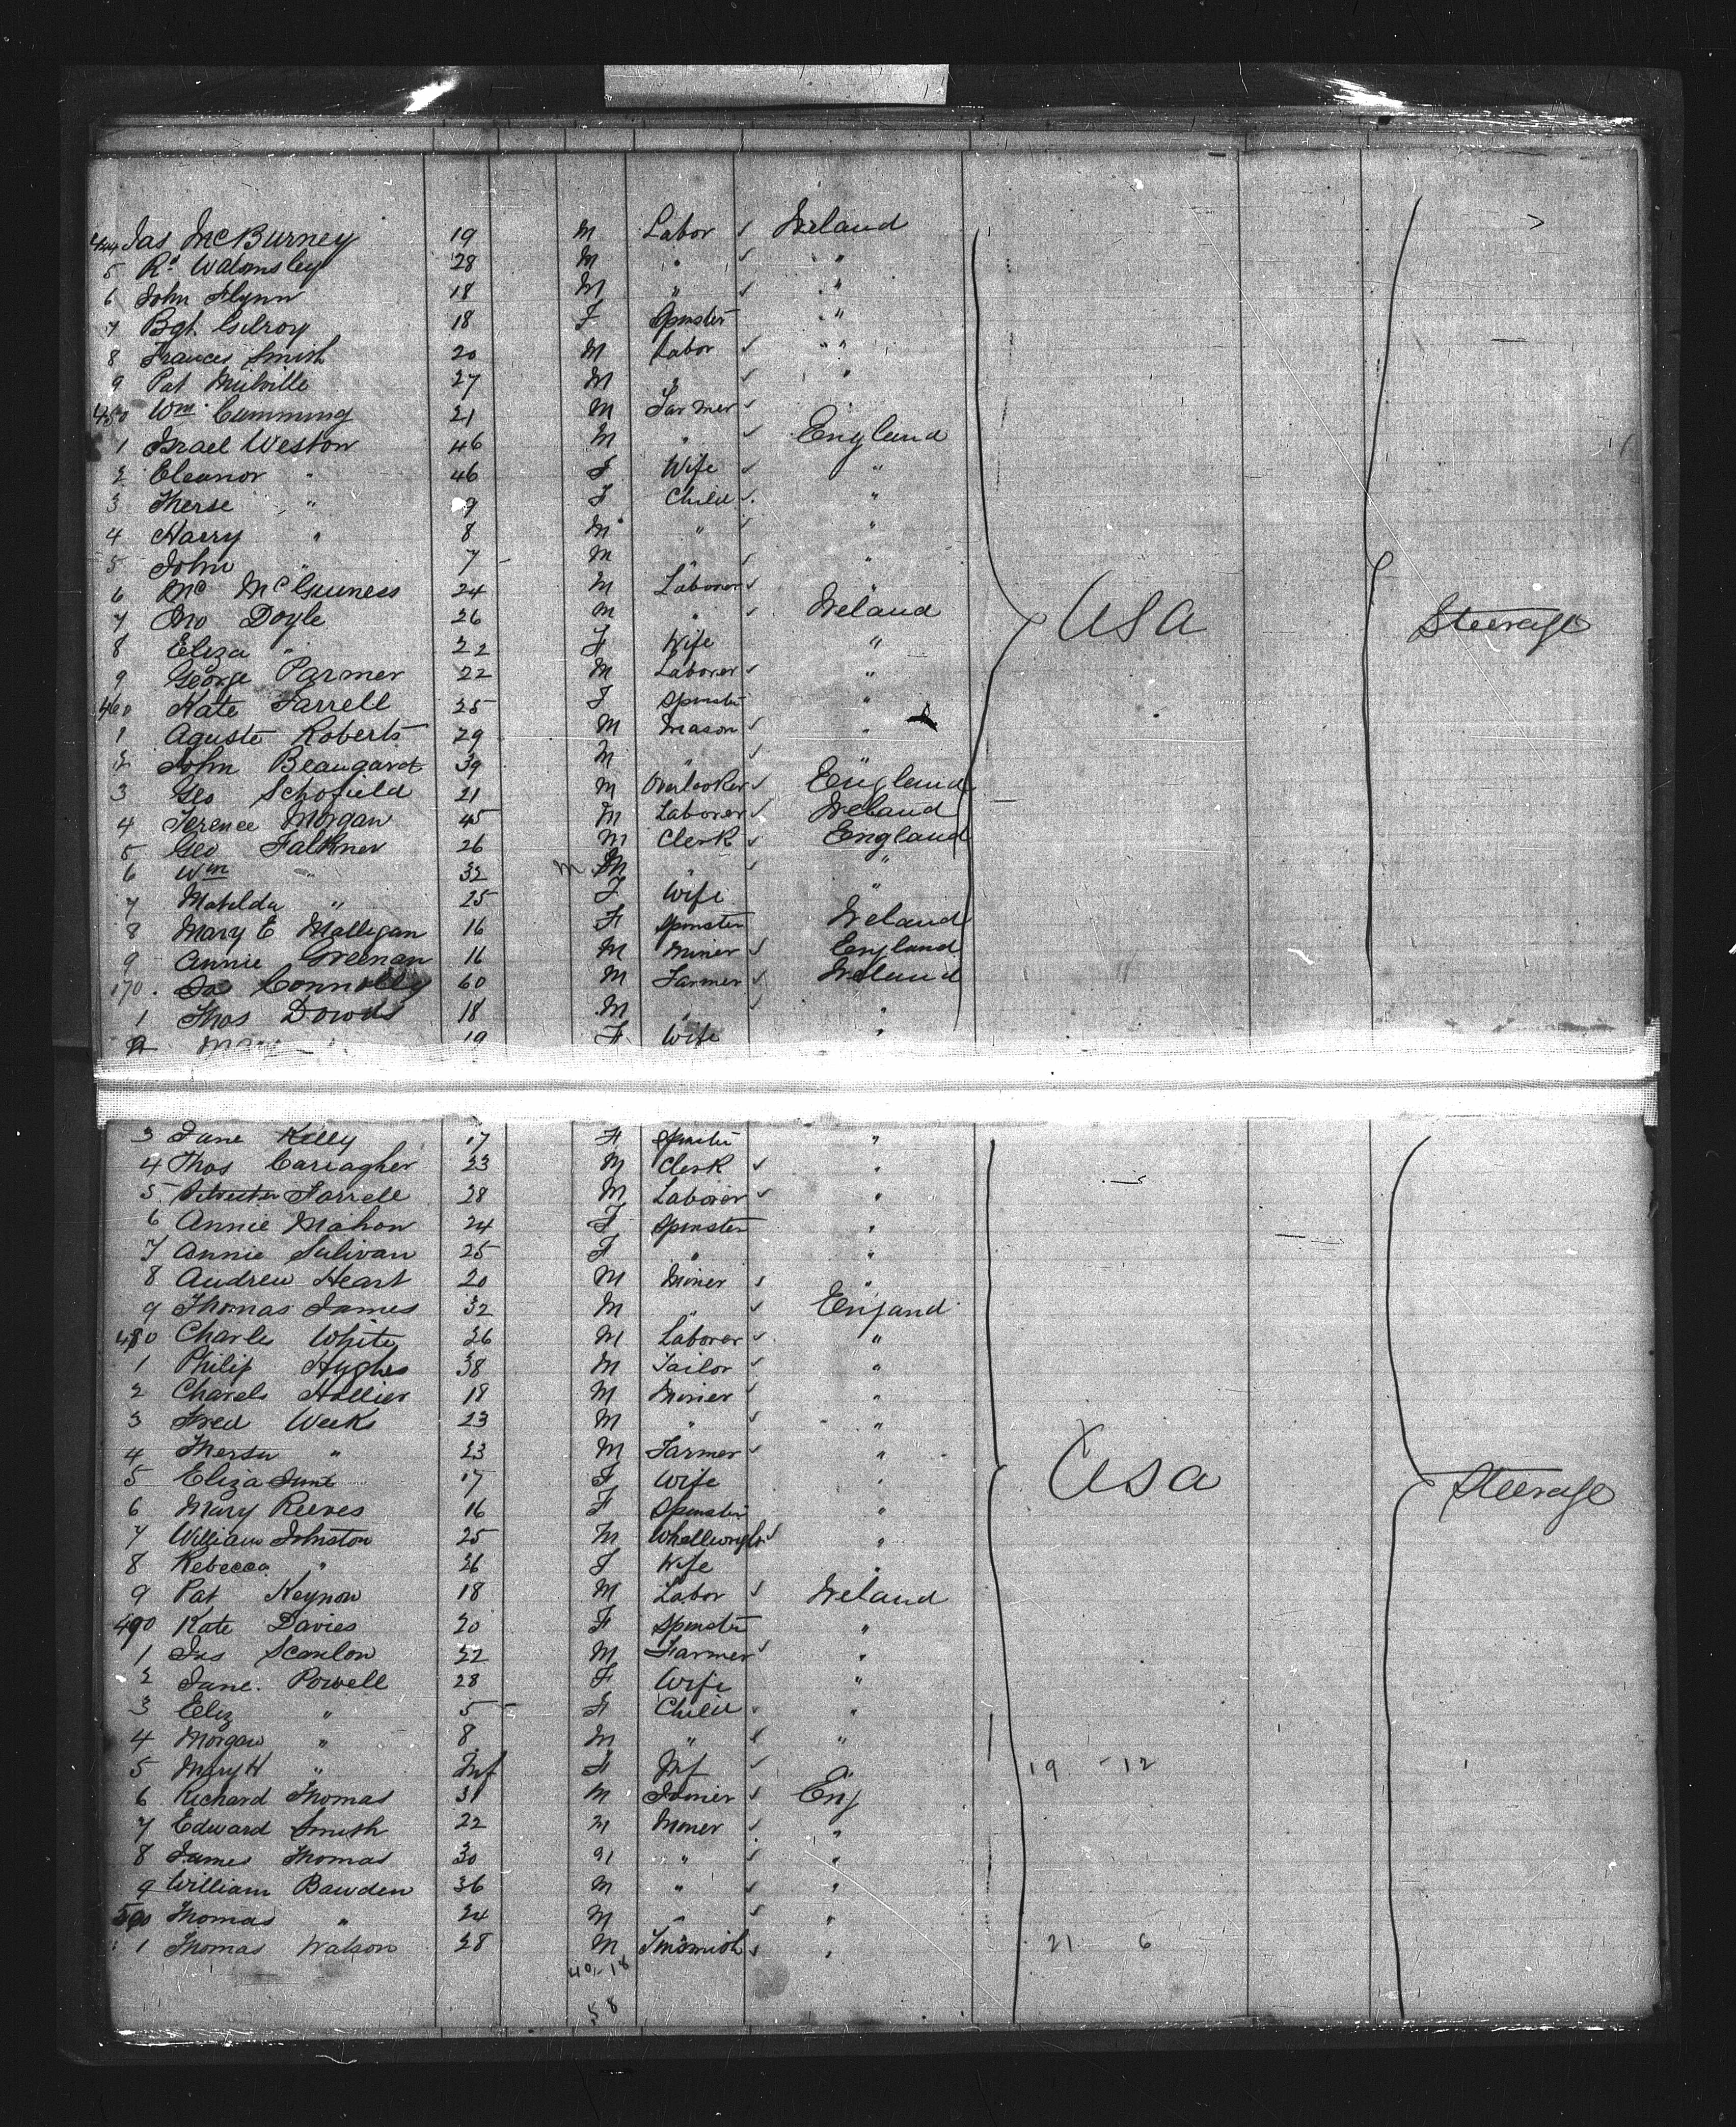 444 Jas McBurney 19 M Labor ✓ Ireland
5 Rd Walmsley 28 M " ✓ "
6 John Flynn 18 M " ✓ "
7 Bgt. Gilroy 18 F Spinster "
8 Frances Smith 20 M Labor ✓ "
9 Pat Mulville 27 M " ✓ "
450 Wm Cumming 21 M Farmer ✓ "
1 Israel Weston 46 M " ✓ England
2 Eleanor " 46 F Wife ✓ "
3 Therse " 9 F Child ✓ "
4 Harry " 8 M " ✓ "
5 John " 7 M " ✓ "
6 Mc McGuiness 24 M Laborer ✓ "
7 Jno Doyle 26 M " ✓ Ireland
USA Steerage
8 Eliza " 22 F Wife "
9 George Parmer 22 M Laborer ✓ "
460 Kate Farrell 25 F Spinster "
1 Aguste Roberts 29 M Mason ✓ "
2 John Beaugard 39 M " ✓ "
3 Geo Schofield 21 M Overlooker ✓ England
4 Terence Morgan 45 M Laborer ✓ Ireland
5 Geo Falkner 26 M Clerk ✓ England
6 Wm " 32 M M " ✓ "
7 Matilda " 25 F Wife "
8 Mary E Malligan 16 F Spinster Ireland
9 Annie Greenan 16 M Miner ✓ England
170 Connolly 60 M Farmer ✓ Ireland
1 Thos Dowds 18 M " ✓ "
2 19 F Wife "
3 Jane Kelly 17 F Spinster "
4 Thos Carragher 23 M Clerk ✓ "
5 Farrell 28 M Laborer ✓ "
6 Annie Mahon 24 F Spinster "
7 Annie Sulivan 25 F " "
8 Andrew Heart 20 M Miner ✓ "
9 Thomas James 32 M " ✓ England
480 Charles White 26 M Laborer ✓ "
1 Philip Hughes 38 M Tailor ✓ "
2 Charels Hollier 18 M Minier ✓ "
3 Fred Weeks 23 M " ✓ "
4 Thersa " 23 M Farmer ✓ "
5 Eliza Jane 17 F Wife "
USA Steerage
6 Mary Reeves 16 F Spinster "
7 William Johnston 25 M Whellwright ✓ "
8 Rebecca " 26 F Wife "
9 Pat Keynon 18 M Labor ✓ Ireland
490 Kate Davies 20 F Spinster "
1 Jas Scanlon 22 M Farmer ✓ "
2 Jane Powell 28 F Wife "
3 Eliz " 5 F Child "
4 Morgan " 8 M " ✓ "
5 Mary H " Inf F Inf ✓ " 19 - 12
6 Richard Thomas 31 M Joiner ✓ Eng
7 Edward Smith 22 M Miner ✓ "
8 James Thomas 30 M " ✓ "
9 William Bawden 36 M " ✓ "
500 Thomas " 24 M " ✓ "
1 Thomas Watson 28 M ✓ " 21 6
40-18
58